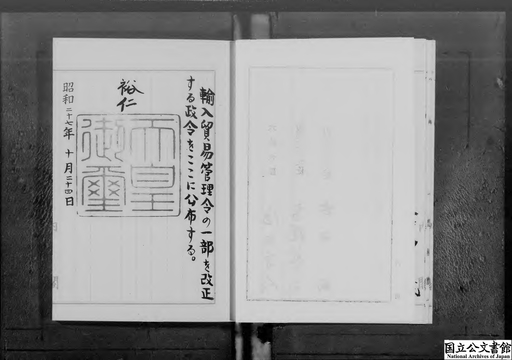 輸入貿易管理令の一部を改正
する政令をここに公布する。
裕仁
天皇
御璽
昭和二十七年 十月二十四日
国立公文書館
National Archives of Japan